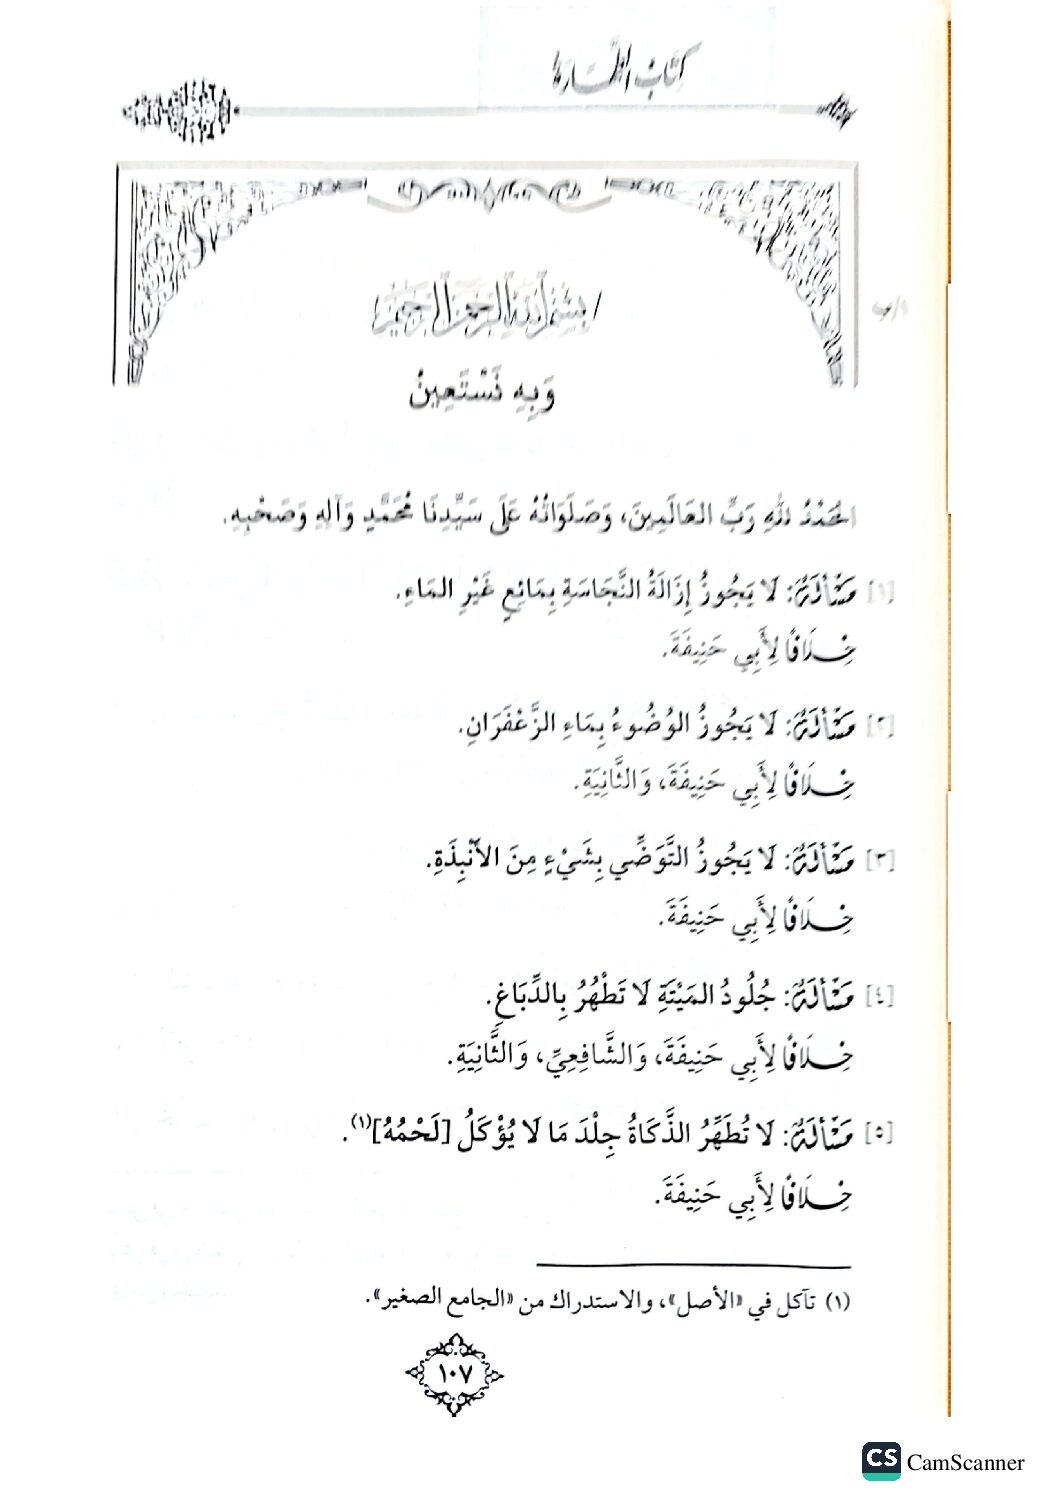 كتاب الطهارة
بسم الله الرحمن الرحيم
١/ب
وَبِهِ نَسْتَعِينُ
الحَمْدُ للهِ رَبِّ العَالَمِينَ، وَصَلَوَاتُهُ عَلَى سَيِّدِنَا مُحَمَّدٍ وَآلِهِ وَصَحْبِهِ.
[١] مَسْأَلَةٌ: لَا يَجُوزُ إِزَالَةُ النَّجَاسَةِ بِمَائِعٍ غَيْرِ المَاءِ.
خِلَافًا لِأَبِي حَنِيفَةَ.
[٢] مَسْأَلَةٌ: لَا يَجُوزُ الوُضُوءُ بِمَاءِ الزَّعْفَرَانِ.
خِلَافًا لِأَبِي حَنِيفَةَ، وَالثَّانِيَةِ.
[٣] مَسْأَلَةٌ: لَا يَجُوزُ التَّوَضِّي بِشَيْءٍ مِنَ الأَنْبِذَةِ.
خِلَافًا لِأَبِي حَنِيفَةَ.
[٤] مَسْأَلَةٌ: جُلُودُ المَيْتَةِ لَا تَطْهُرُ بِالدِّبَاغِ.
خِلَافًا لِأَبِي حَنِيفَةَ، وَالشَّافِعِيِّ، وَالثَّانِيَةِ.
[٥] مَسْأَلَةٌ: لَا تُطَهِّرُ الذَّكَاةُ جِلْدَ مَا لَا يُؤْكَلُ [لَحْمُهُ](١).
خِلَافًا لِأَبِي حَنِيفَةَ.
(١) تآكل في «الأصل»، والاستدراك من «الجامع الصغير».
١٠٧
CS CamScanner